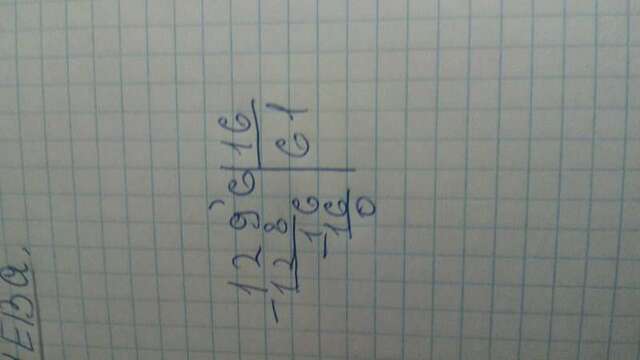 ЕВа.
1296 16
-128 61
16
-16
0